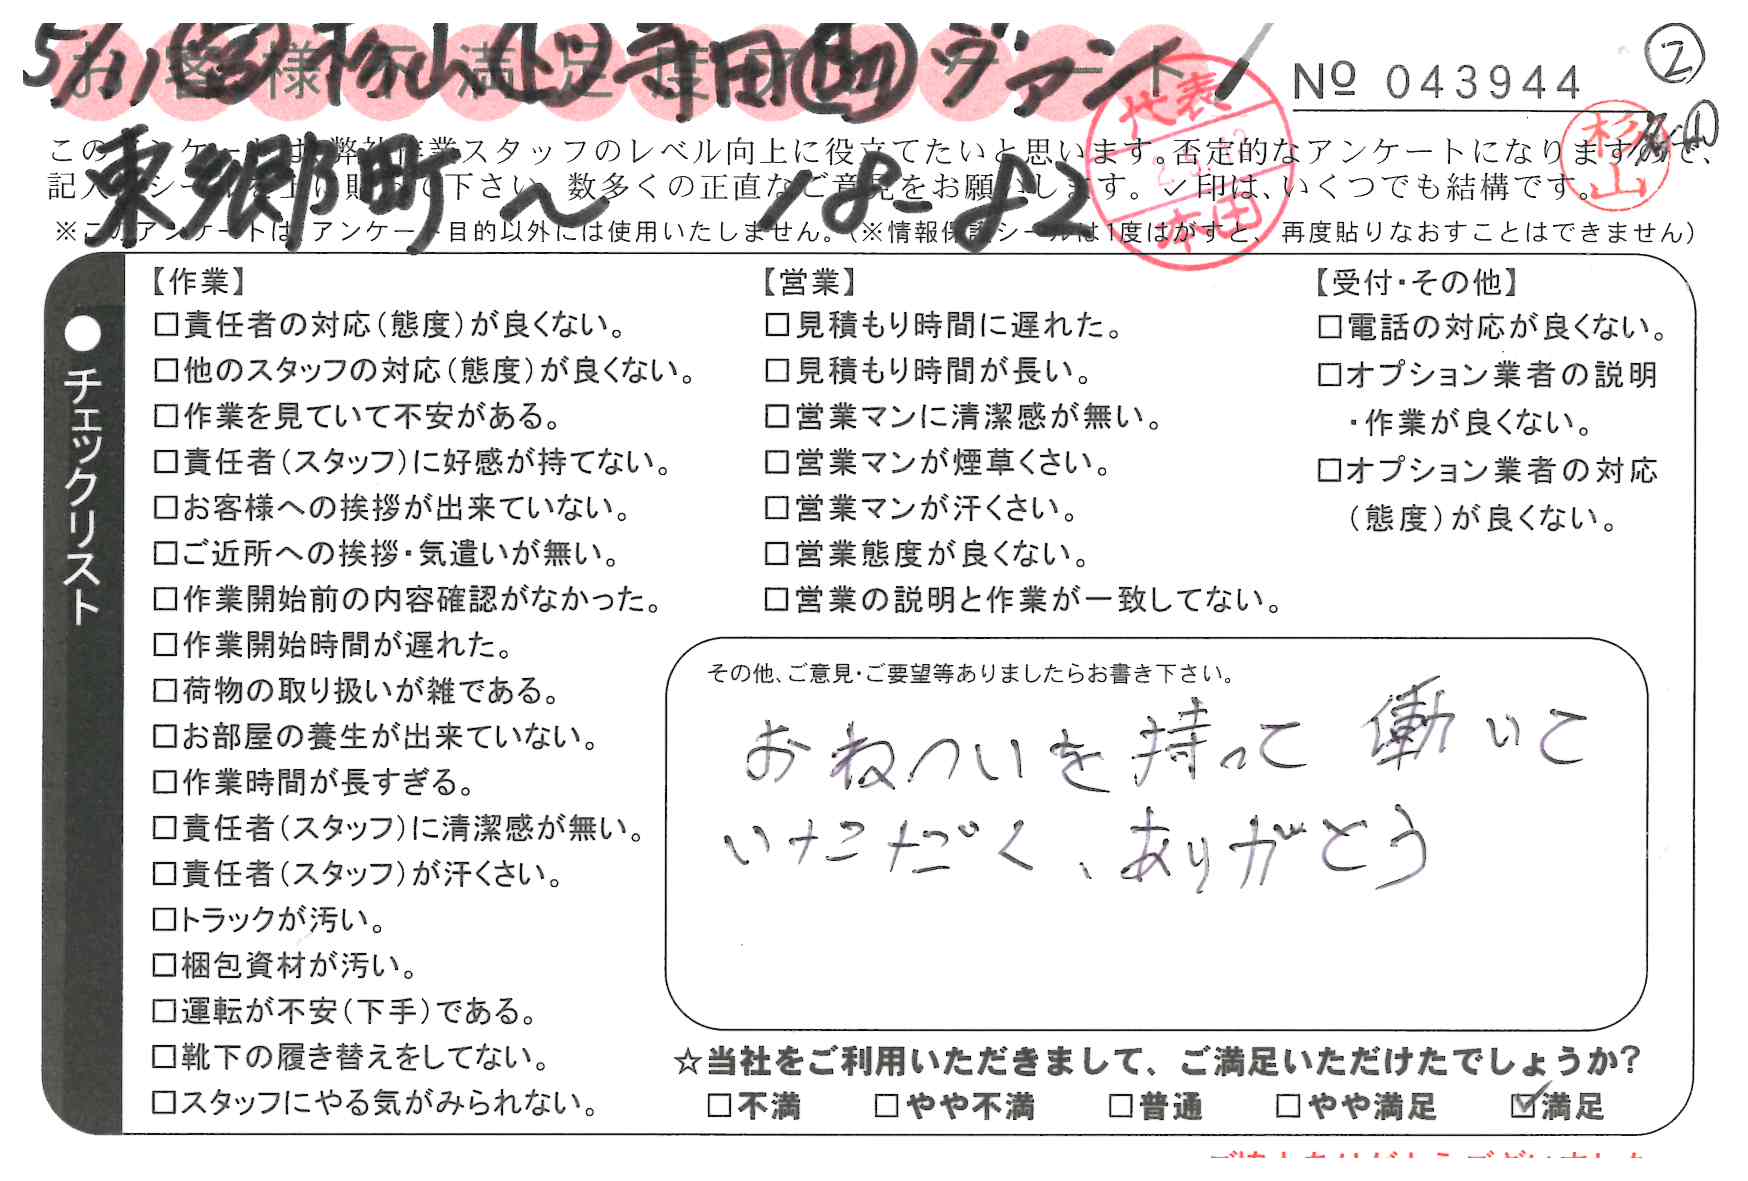 お客様不満足度アンケート
5/11 杉山 寺田 ヴァント
№ 043944
②
このアンケートは、弊社作業スタッフのレベル向上に役立てたいと思います。否定的なアンケートになりますので、
記入シールを上に貼って下さい。数多くの正直なご意見をお願いします。✓印は、いくつでも結構です。
東郷町〜
※このアンケートは、アンケート目的以外には使用いたしません。(※情報保護シールは1度はがすと、再度貼りなおすことはできません)
代表
本田
杉山
●チェックリスト
【作業】
□責任者の対応(態度)が良くない。
□他のスタッフの対応(態度)が良くない。
□作業を見ていて不安がある。
□責任者(スタッフ)に好感が持てない。
□お客様への挨拶が出来ていない。
□ご近所への挨拶・気遣いが無い。
□作業開始前の内容確認がなかった。
□作業開始時間が遅れた。
□荷物の取り扱いが雑である。
□お部屋の養生が出来ていない。
□作業時間が長すぎる。
□責任者(スタッフ)に清潔感が無い。
□責任者(スタッフ)が汗くさい。
□トラックが汚い。
□梱包資材が汚い。
□運転が不安(下手)である。
□靴下の履き替えをしてない。
□スタッフにやる気がみられない。
【営業】
□見積もり時間に遅れた。
□見積もり時間が長い。
□営業マンに清潔感が無い。
□営業マンが煙草くさい。
□営業マンが汗くさい。
□営業態度が良くない。
□営業の説明と作業が一致してない。
【受付・その他】
□電話の対応が良くない。
□オプション業者の説明
・作業が良くない。
□オプション業者の対応
(態度)が良くない。
その他、ご意見・ご要望等ありましたらお書き下さい。
おねついを持って 働いて
いただだく、ありがとう
☆当社をご利用いただきまして、ご満足いただけたでしょうか?
□不満 □やや不満 □普通 □やや満足 ☑満足